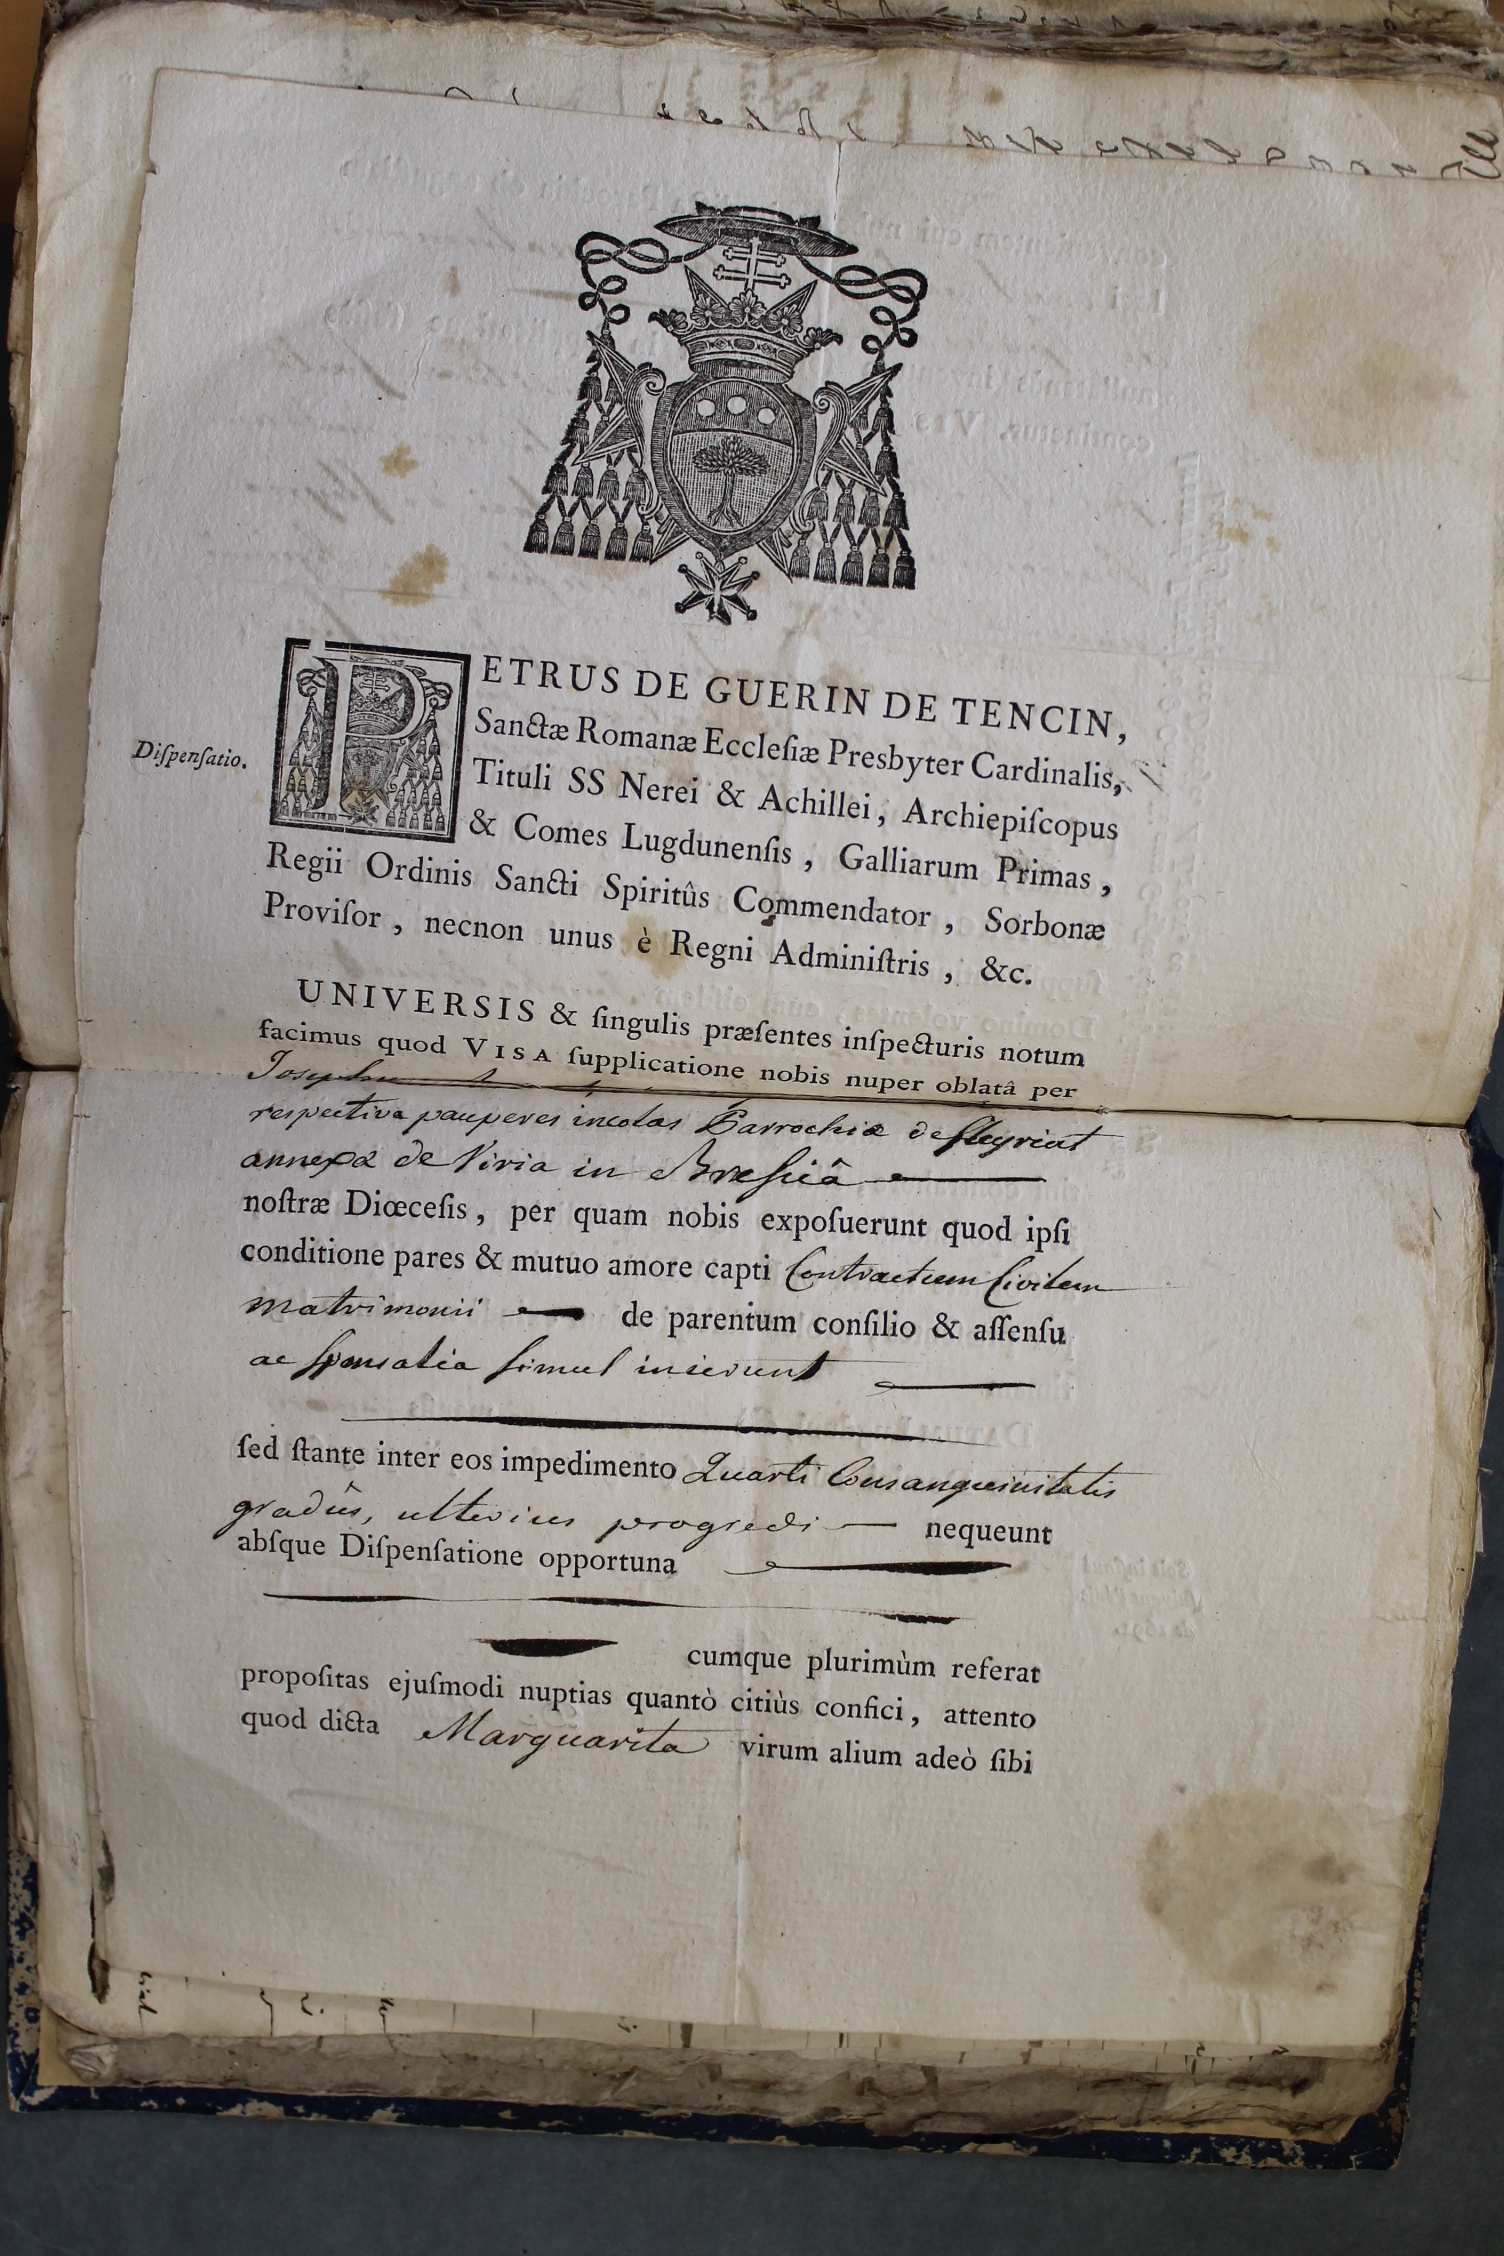 Diſpenſatio.
PETRUS DE GUERIN DE TENCIN,
Sanctæ Romanæ Eccleſiæ Presbyter Cardinalis,
Tituli SS Nerei & Achillei, Archiepiſcopus
& Comes Lugdunenſis, Galliarum Primas,
Regii Ordinis Sancti Spiritûs Commendator, Sorbonæ
Proviſor, necnon unus è Regni Adminiſtris, &c.
UNIVERSIS & ſingulis præſentes inſpecturis notum
facimus quod VISA ſupplicatione nobis nuper oblatâ per
respective pauperes incolas Parrochiæ de fleyriat
annexæ de Viria in Bressiâ
noſtræ Diœceſis, per quam nobis expoſuerunt quod ipſi
conditione pares & mutuo amore capti Contractum Civilem
matrimonii de parentum conſilio & aſſenſu
ac sponsalia simul inierunt
ſed ſtante inter eos impedimento Quarti Consanguinitatis
gradûs, ulterius progredi nequeunt
abſque Diſpenſatione opportuna
cumque plurimùm referat
propoſitas ejuſmodi nuptias quantò citiùs confici, attento
quod dicta Marguarita virum alium adeò ſibi